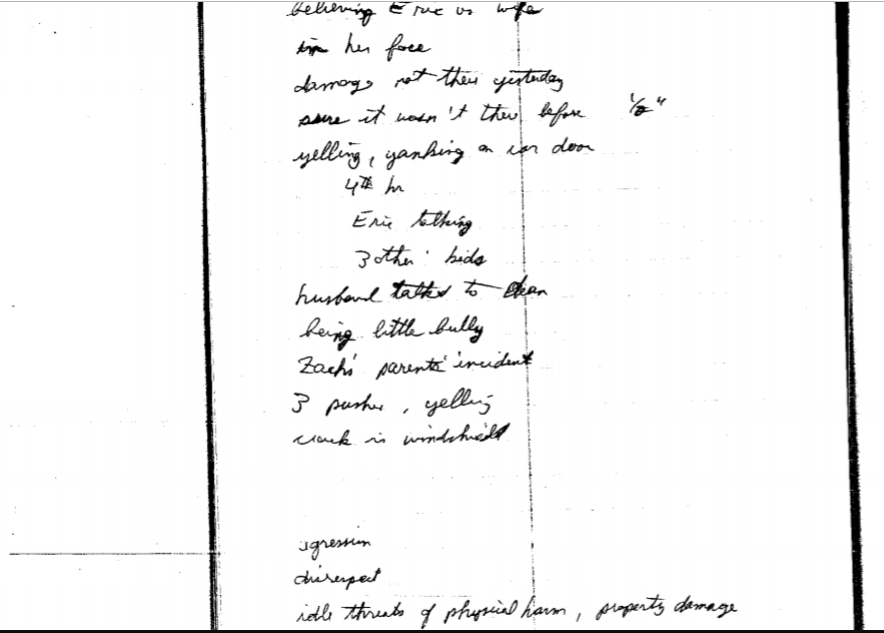 believing Eric vs wife
in her face
damage not there yesterday
sure it wasn't there before 1/2"
yelling, yanking on car door
4th hr
Eric talking
3 other kids
husband talks to
being little bully
Zach's parents' incident
3 pushes, yelling
crack in windshield
agression
disrespect
idle threats of physical harm, property damage